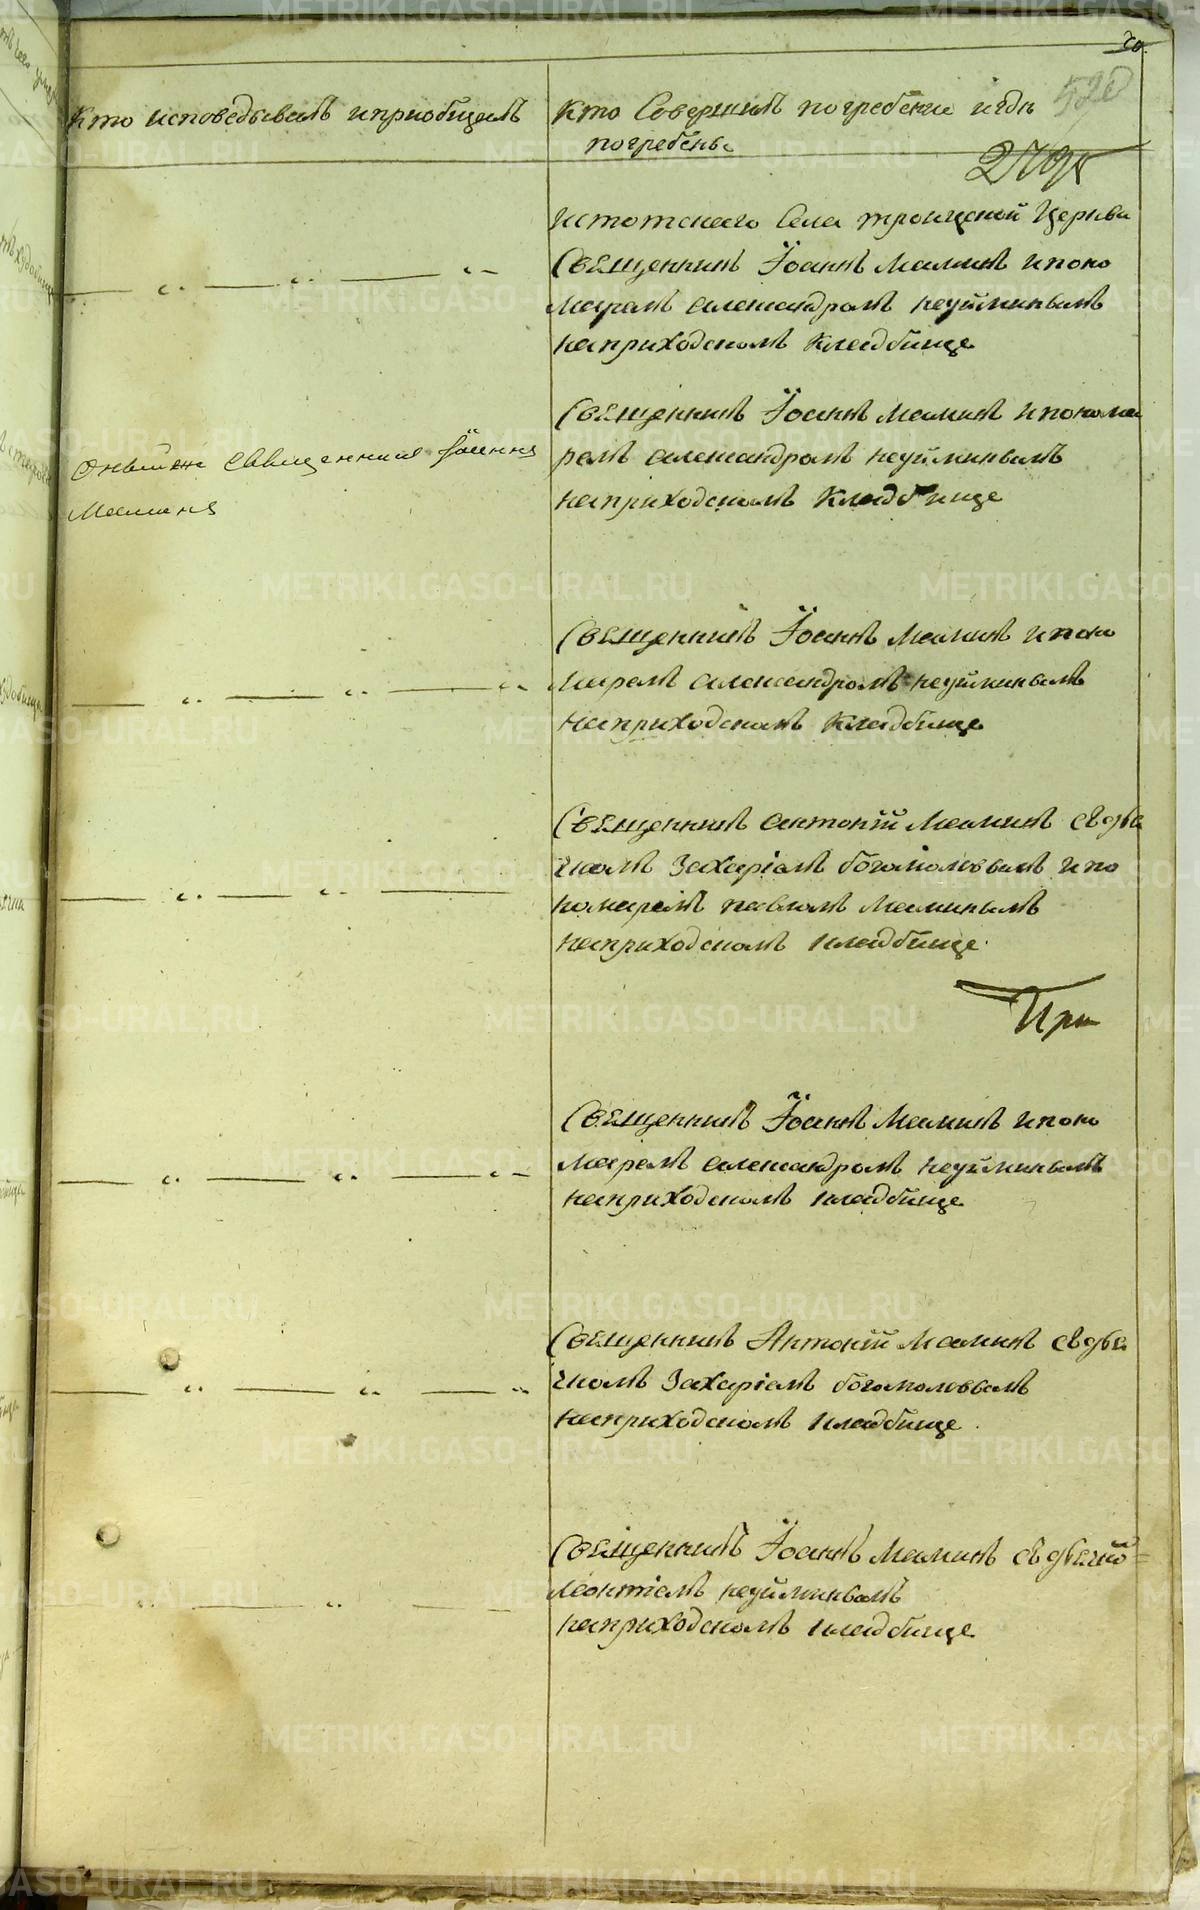 20.
520
Кто исповедывалъ и приобщалъ
Кто Совершилъ погребение и гдѣ
погребены
Истотскаго Села троицской Церкви
Священникъ Їоаннъ Маминъ и поно
маремъ александромъ неуйминымъ
наприходскомъ Кладбище
Священникъ Їоаннъ Маминъ и понома
ремъ александромъ неуйминымъ
наприходскомъ Кладбище
Онымже Священникъ Їоаннъ
Маминъ
Священникъ Їоаннъ Маминъ и поно
маремъ александромъ неуйминымъ
наприходскомъ Кладбище
Священникъ антонїй Маминъ съ дья
чкомъ Захаріемъ богомоловымъ и по
номаремъ павломъ Маминымъ
наприходскомъ кладбище
При
Священникъ Їоаннъ Маминъ и поно
маремъ александромъ неуйминымъ
наприходскомъ кладбище
Священникъ Антонїй Маминъ съ дья
чкомъ Захаріемъ богомоловымъ
наприходскомъ кладбище
Священникъ Їоаннъ Маминъ съ дьячко
Леонтіемъ неуйминымъ
наприходскомъ кладбище
METRIKI.GASO-URAL.RU